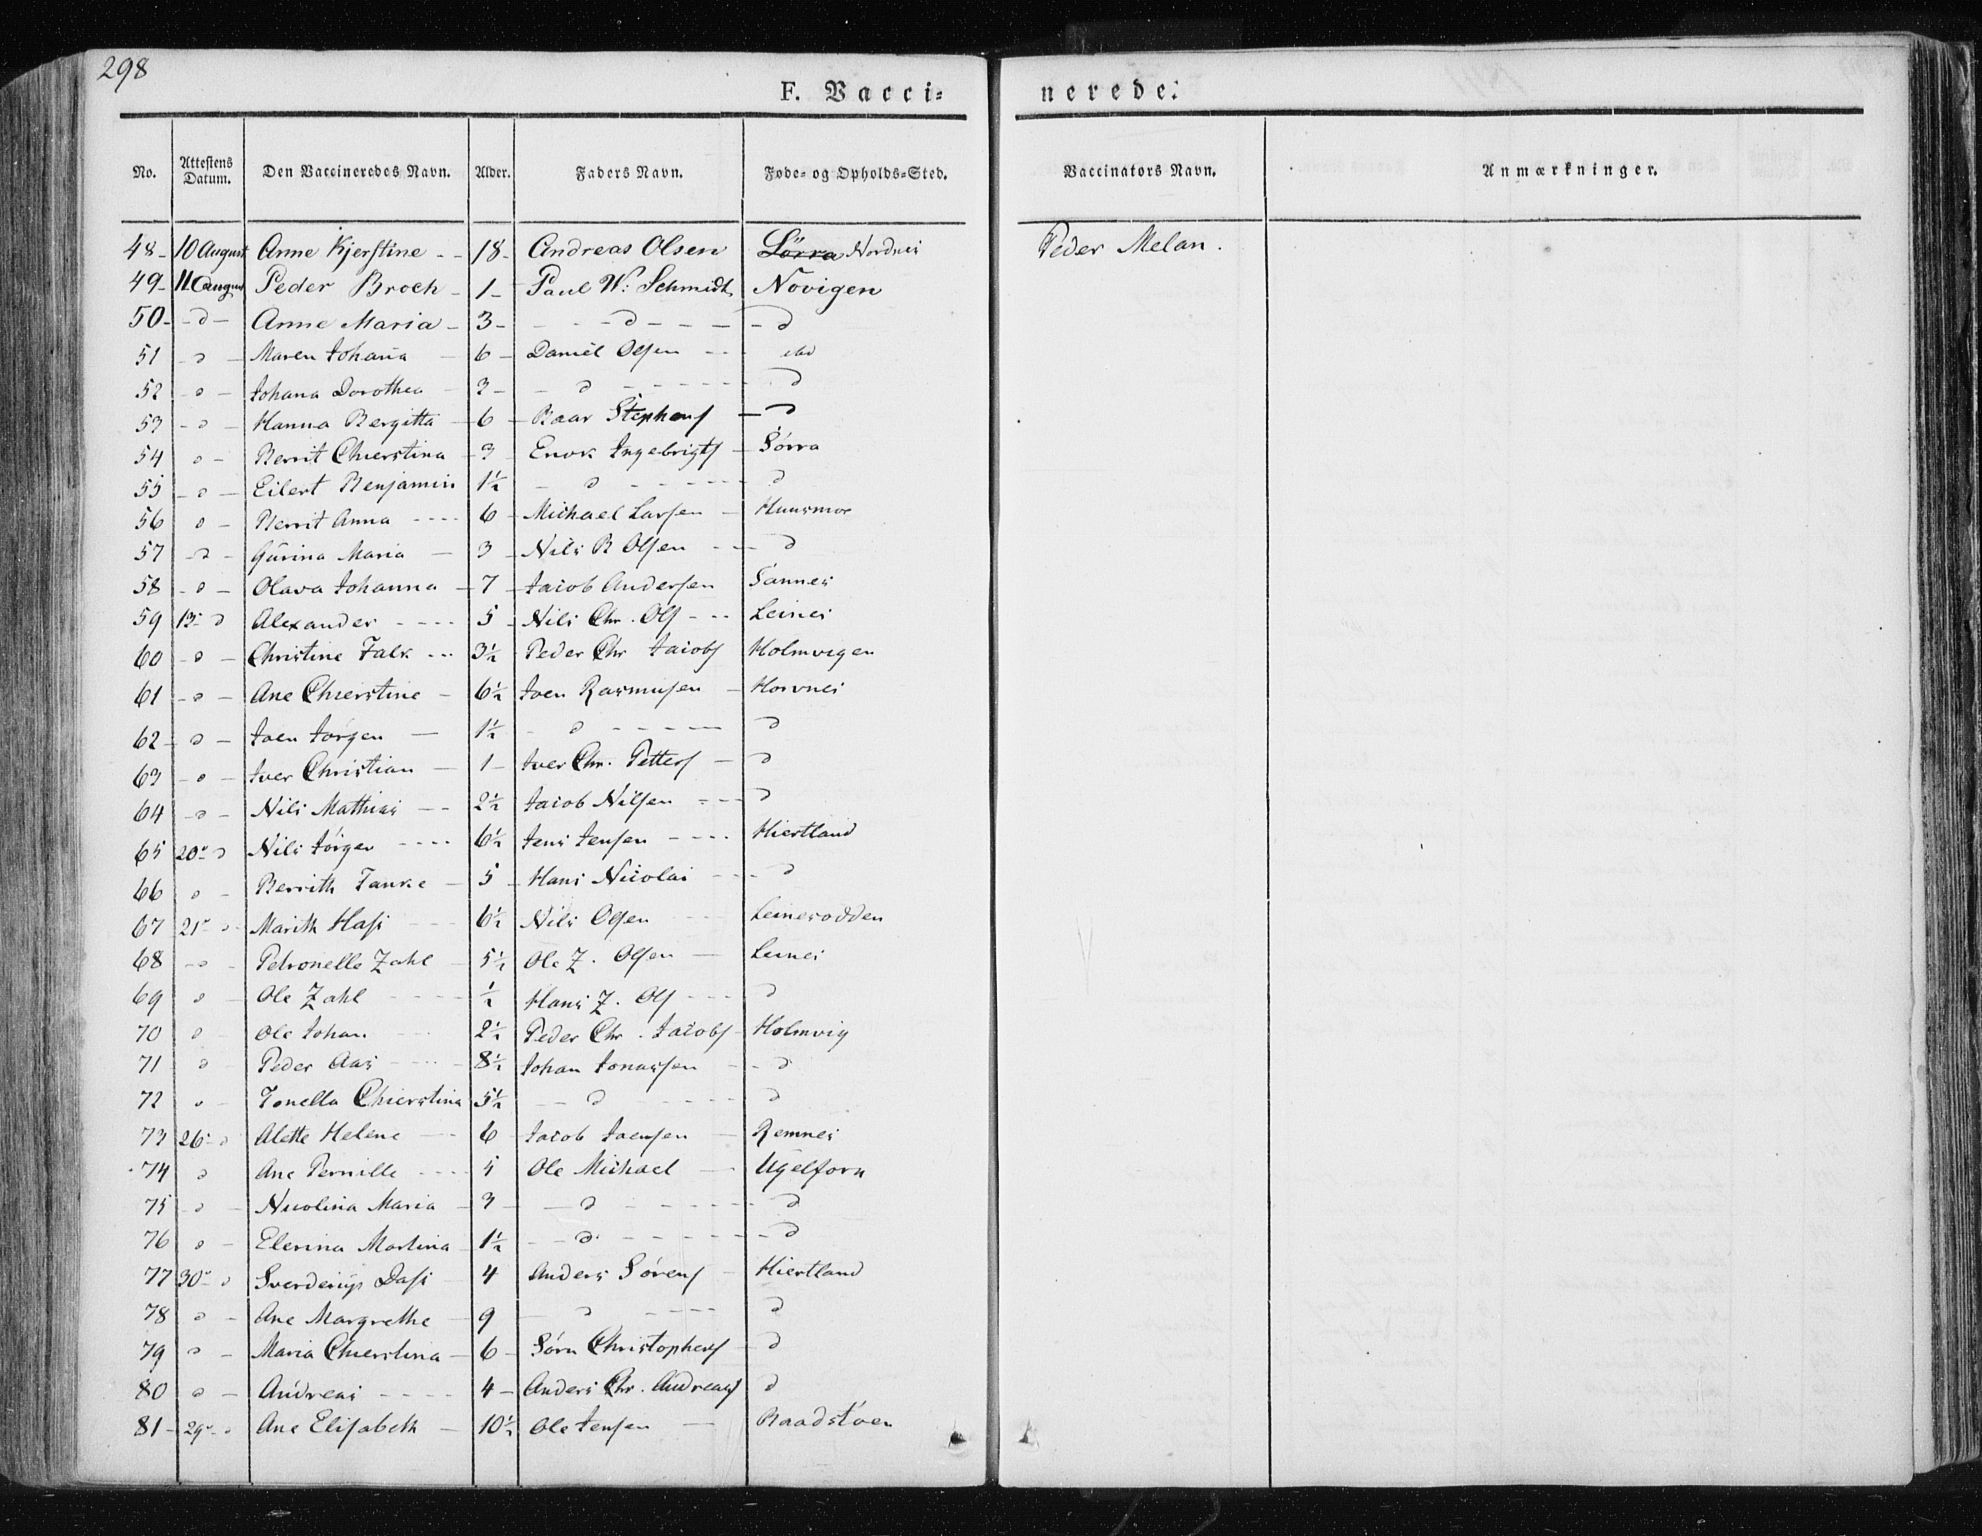 298
F. Vacci= nerede:
No. Attestens Datum. Den Vaccineredes Navn. Alder. Faders Navn. Føde- og Opholds-Sted. Vaccinators Navn. Anmærkninger.
48 - 10 August Anne Kjerstine - - 18 - Andreas Olsen Sörra Nordnes Peder Melan.
49 - 11 August Peder Broch - 1 - Paul W: Schmidt Novigen
50 - - d - Anne Maria - 3 - - - - d - - - - d
51 - d - Maren Johana - 6 - Daniel Olsen - - -
52 - d - Johana Dorothea - 3 - - d - - - - - d
53 - d - Hanna Bergitta - 6 - Roar Stephens - d
54 d - Berrit Chierstina - 3 - Enok Ingebrigts - Sørra
55 - d - Eilert Benjamin 1½ - d - - - - - d
56 d - Berrit Anna - - - - 6 - Michael Larsen - Huusmoe
57 - d - Gurina Maria - 3 - Nils B Olsen - - - d
58 - d - Olava Johanna - 7 - Jacob Andersen Sannes
59 13 - d Alexander - - - - 5 - Nils Chr. Ols - - - Leines
60 - d - Christine Falk - - - 3½ Peder Chr Jacobs Holmvigen
61 - d - Ane Chierstine - 6½ Joen Rasmusen - Horvnes
62 - d - Joen Jørgen - 1½ - d - - - - - d
63 - d - Iver Christian - 1 - Iver Chr. Petters - d
64 - d - Nils Mathias - - 2½ Jacob Nilsen - - - d
65 20 - d Nils Jørgen - - - - 6½ Jens Jensen - - - - Hiertland
66 d - Berrith Tanke - 5 - Hans Nicolai - - - d
67 21 - d - Marith Hasi - - - 6½ Nils Olsen - - - Leinesodden
68 - d - Petronelle Zahl - 5½ Ole Z. Olsen - Leines
69 d - Ole Zahl - - - - ½ Hans Z. Ols - - - d
70 d - Ole Johan - - - 2½ Peder Chr. Jacobs - Holmvig
71 d - Peder Aas - - - - 8½ Johan Jonassen - - d
72 d - Tonella Chierstina 5½ - - d - - - - - d
73 26 - d Alette Helene - - 6 - Jacob Joensen - Remnes
74 d Ane Pernille - - - - 5 Ole Michael - Ugelforn
75 - d - Nicolina Maria - 3 - - d - - - - - - d
76 d - Elerina Martina - 1½ - - d - - - - - - d
77 30 - d Sverderup Dasi - 4 Anders Sørens - Hiertland
78 d - Ane Margrethe - 9 - d - - - - d
79 d - Maria Chierstina - 6 - Sørn Christophers - d
80 d - Andreas - - - - 4 - Anders Chr. Andreas d
81 - 29 - d Ane Elisabeth - 10½ Ole Jensen - Raadstøen